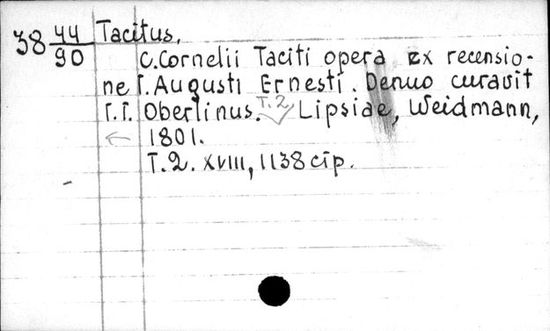 38 44/90 Tacitus.
C. Cornelii Taciti opera ex recensio-
ne I. Augusti Ernesti. Denuo curavit
I. I. Oberlinus. T. 2 Lipsiae, Weidmann,
1801.
T. 2. XVIII, 1138 стр.